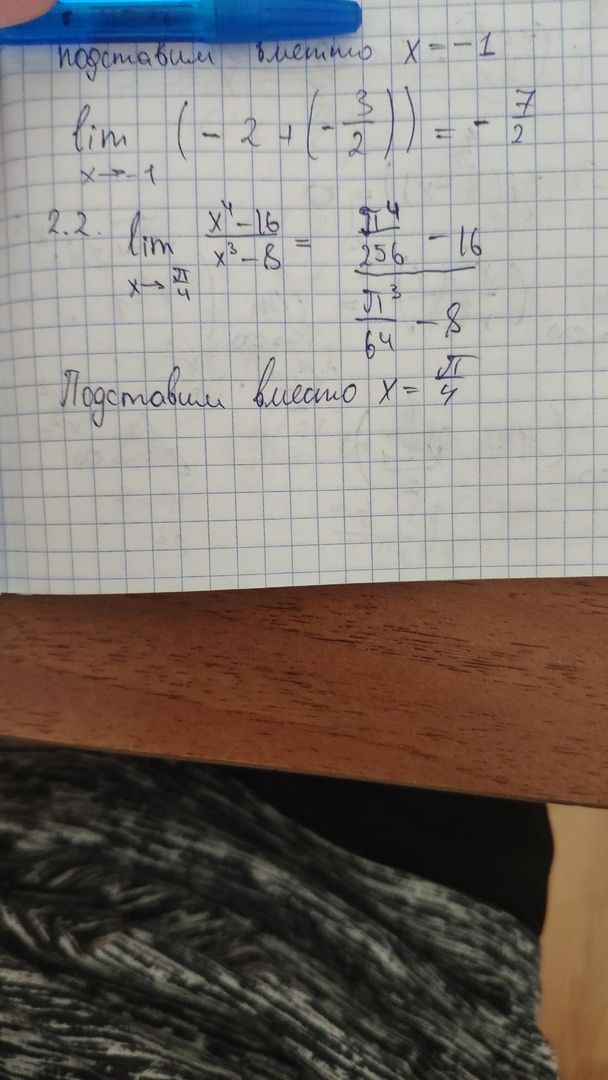 подставим вместо x = -1
lim (- 2 + (- 3/2)) = - 7/2
x→-1
2.2. lim (x⁴-16)/(x³-8) = (π⁴/256 - 16)/(π³/64 - 8)
x→π/4
Подставим вместо x = π/4